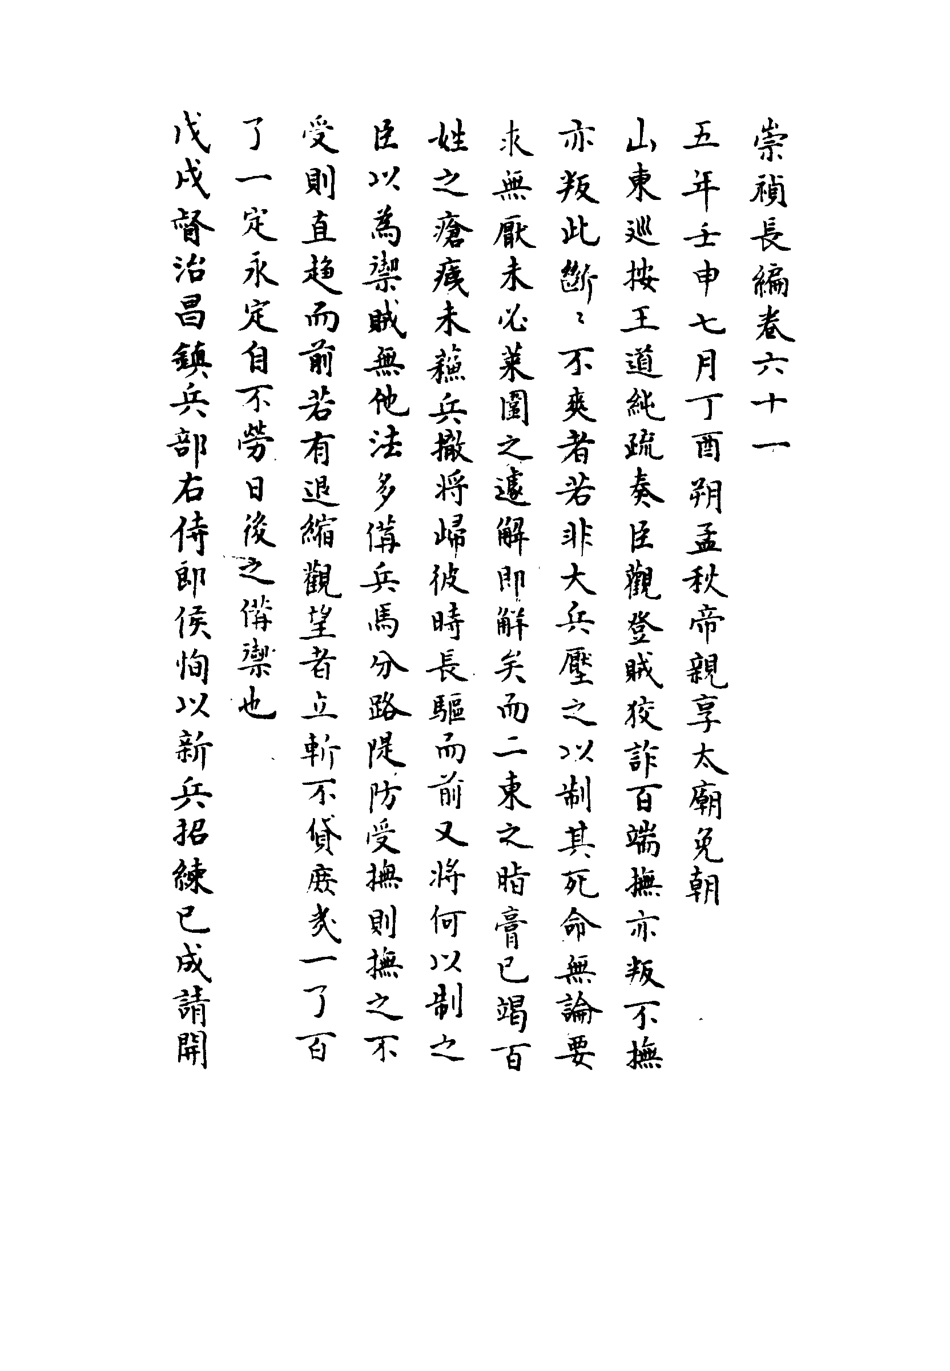 崇禎長編卷六十一
五年壬申七月丁酉朔孟秋帝親享太廟免朝
山東巡按王道純疏奏臣觀登賊狡詐百端撫亦叛不撫
亦叛此斷〻不爽者若非大兵壓之以制其死命無論要
求無厭未必萊圍之遽解即解矣而二東之脂膏已竭百
姓之瘡痍未蘇兵撤將歸彼時長驅而前又將何以制之
臣以為禦賊無他法多備兵馬分路隄防受撫則撫之不
受則直趨而前若有退縮觀望者立斬不貸庶幾一了百
了一定永定自不勞日後之備禦也
戊戌督治昌鎮兵部右侍郎侯恂以新兵招練已成請開